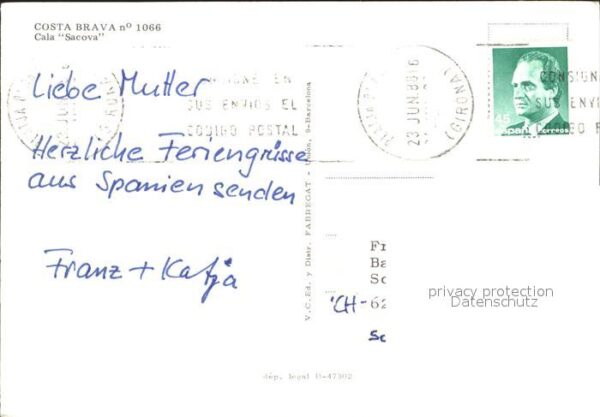 COSTA BRAVA nº 1066
Cala "Sacova"
CONSIGNE EN
SUS ENVIOS EL
CODIGO POSTAL
23 JUN.88
(GIRONA)
CONSIGNE
SUS ENVI
45
España Correos
Liebe Mutter
Herzliche Feriengrüsse
aus Spanien senden
Franz + Katja
V.C. Ed. y Distr. FABREGAT - Barcelona
Fr
Ba
Sc
CH-62
Sc
privacy protection
Datenschutz
dép. legal B-47302